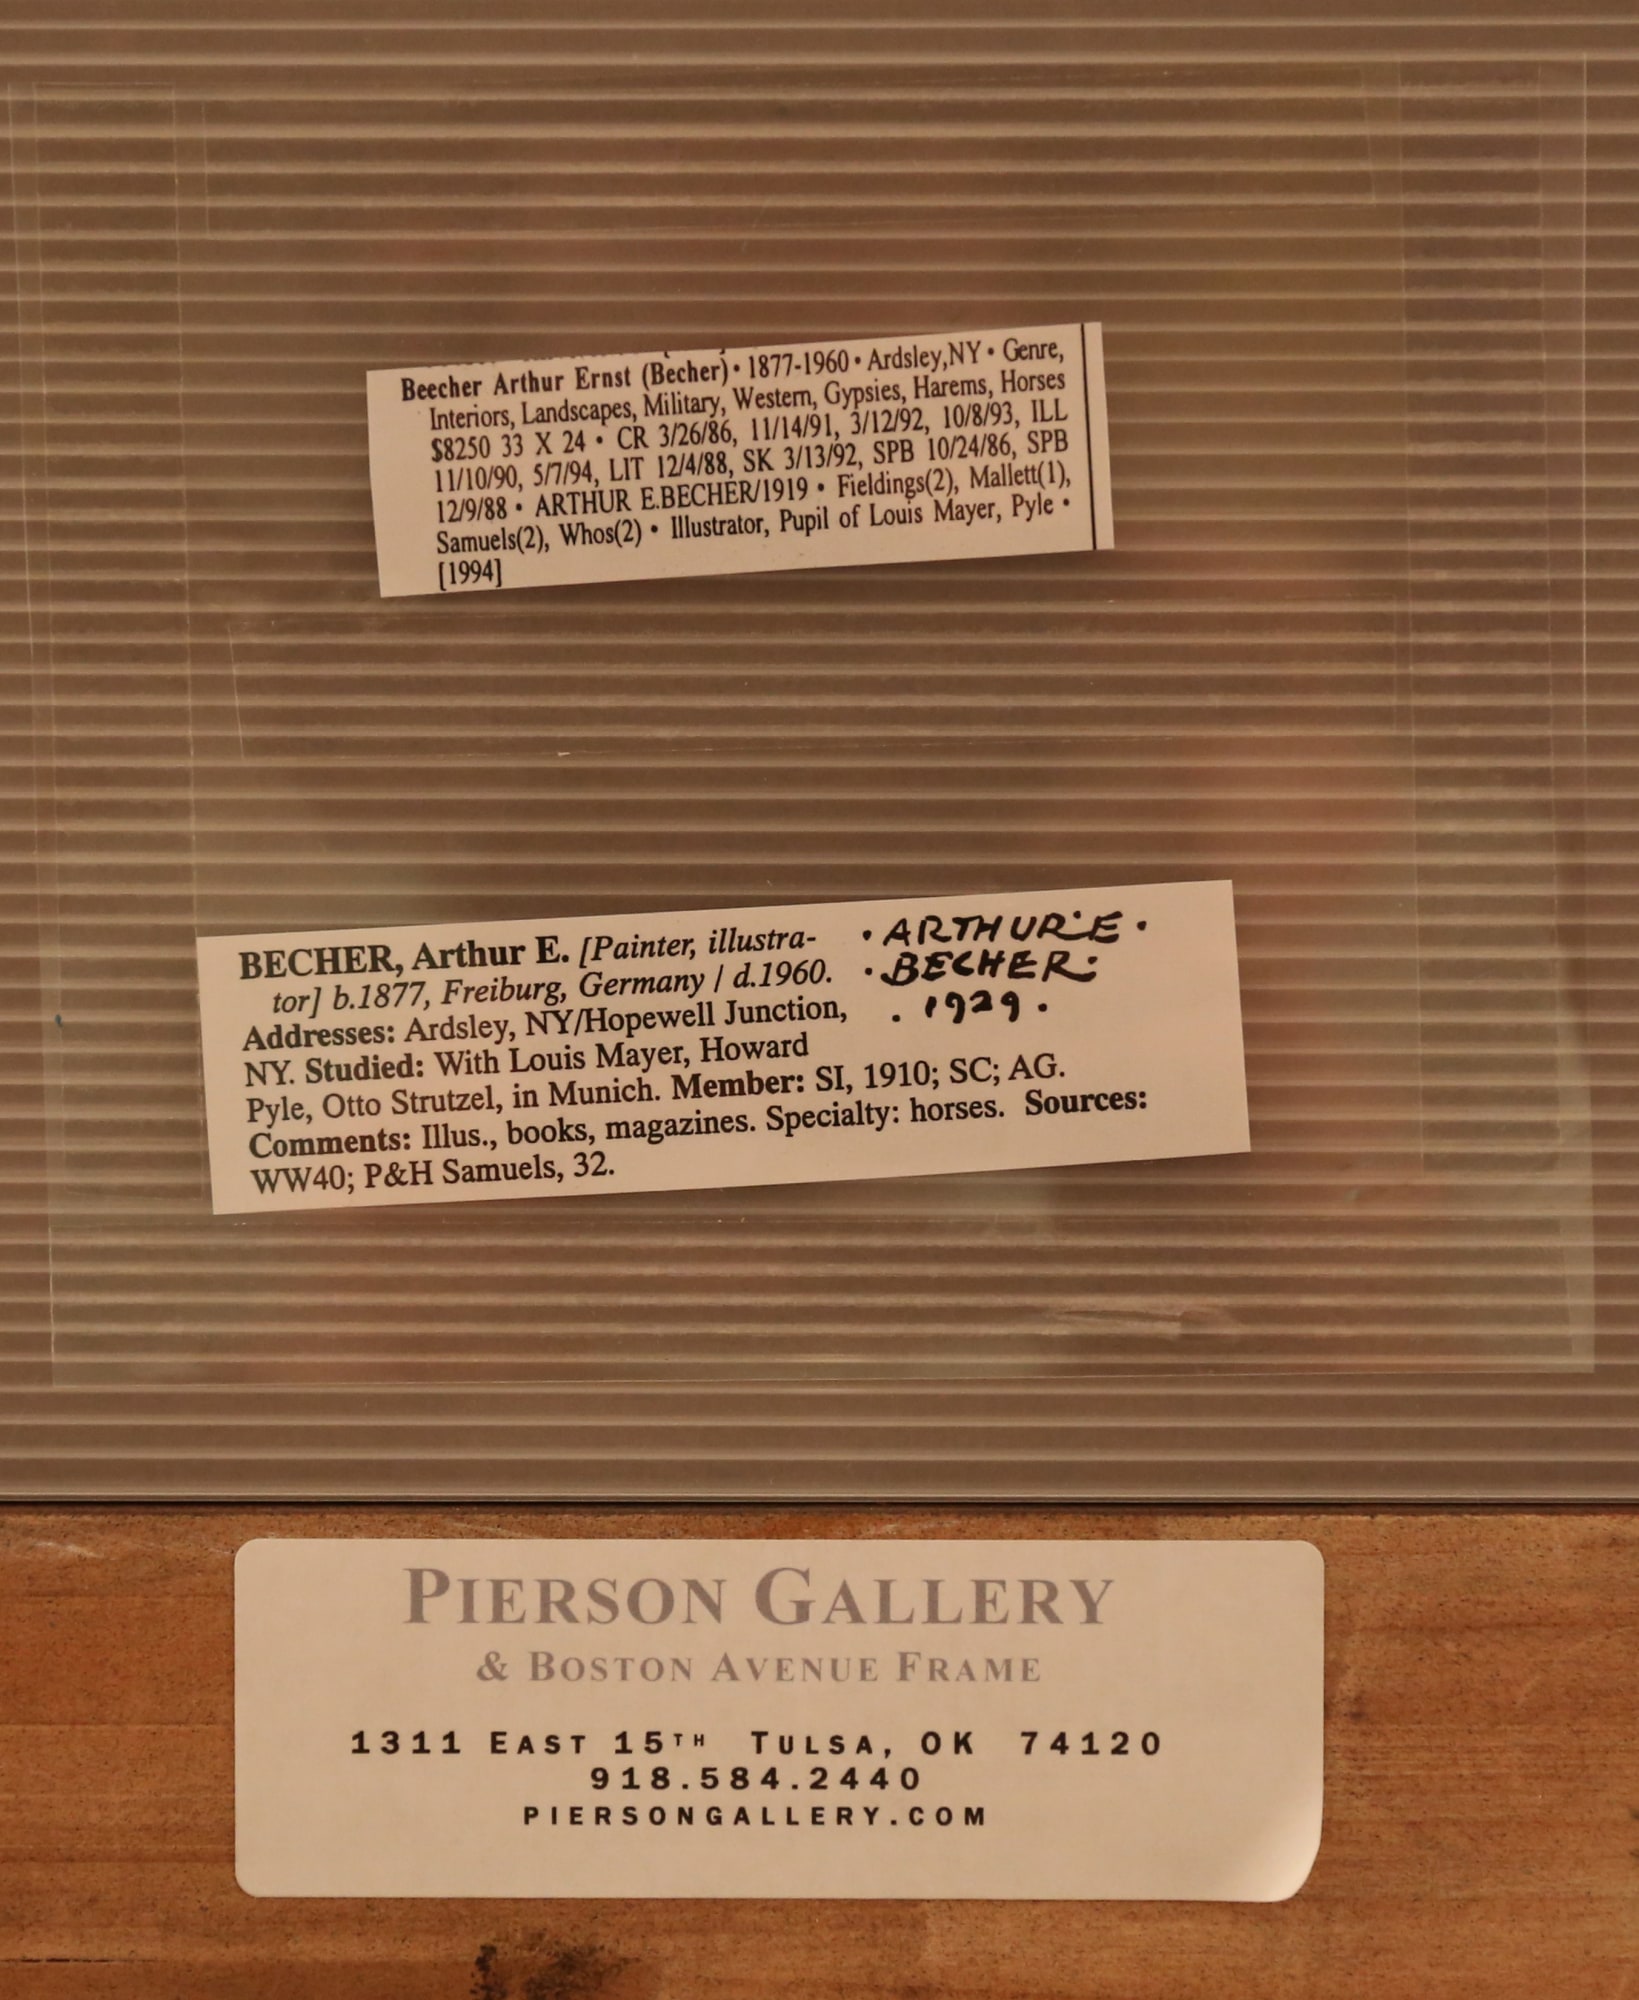 Beecher Arthur Ernst (Becher) • 1877-1960 • Ardsley,NY • Genre,
Interiors, Landscapes, Military, Western, Gypsies, Harems, Horses
$8250 33 X 24 • CR 3/26/86, 11/14/91, 3/12/92, 10/8/93, ILL
11/10/90, 5/7/94, LIT 12/4/88, SK 3/13/92, SPB 10/24/86, SPB
12/9/88 • ARTHUR E.BECHER/1919 • Fieldings(2), Mallett(1),
Samuels(2), Whos(2) • Illustrator, Pupil of Louis Mayer, Pyle •
[1994]
BECHER, Arthur E. [Painter, illustra-
tor] b.1877, Freiburg, Germany / d.1960.
Addresses: Ardsley, NY/Hopewell Junction,
NY. Studied: With Louis Mayer, Howard
Pyle, Otto Strutzel, in Munich. Member: SI, 1910; SC; AG.
Comments: Illus., books, magazines. Specialty: horses. Sources:
WW40; P&H Samuels, 32.
• ARTHUR•E •
• BECHER •
. 1929 .
PIERSON GALLERY
& BOSTON AVENUE FRAME
1311 EAST 15TH TULSA, OK 74120
918.584.2440
PIERSONGALLERY.COM